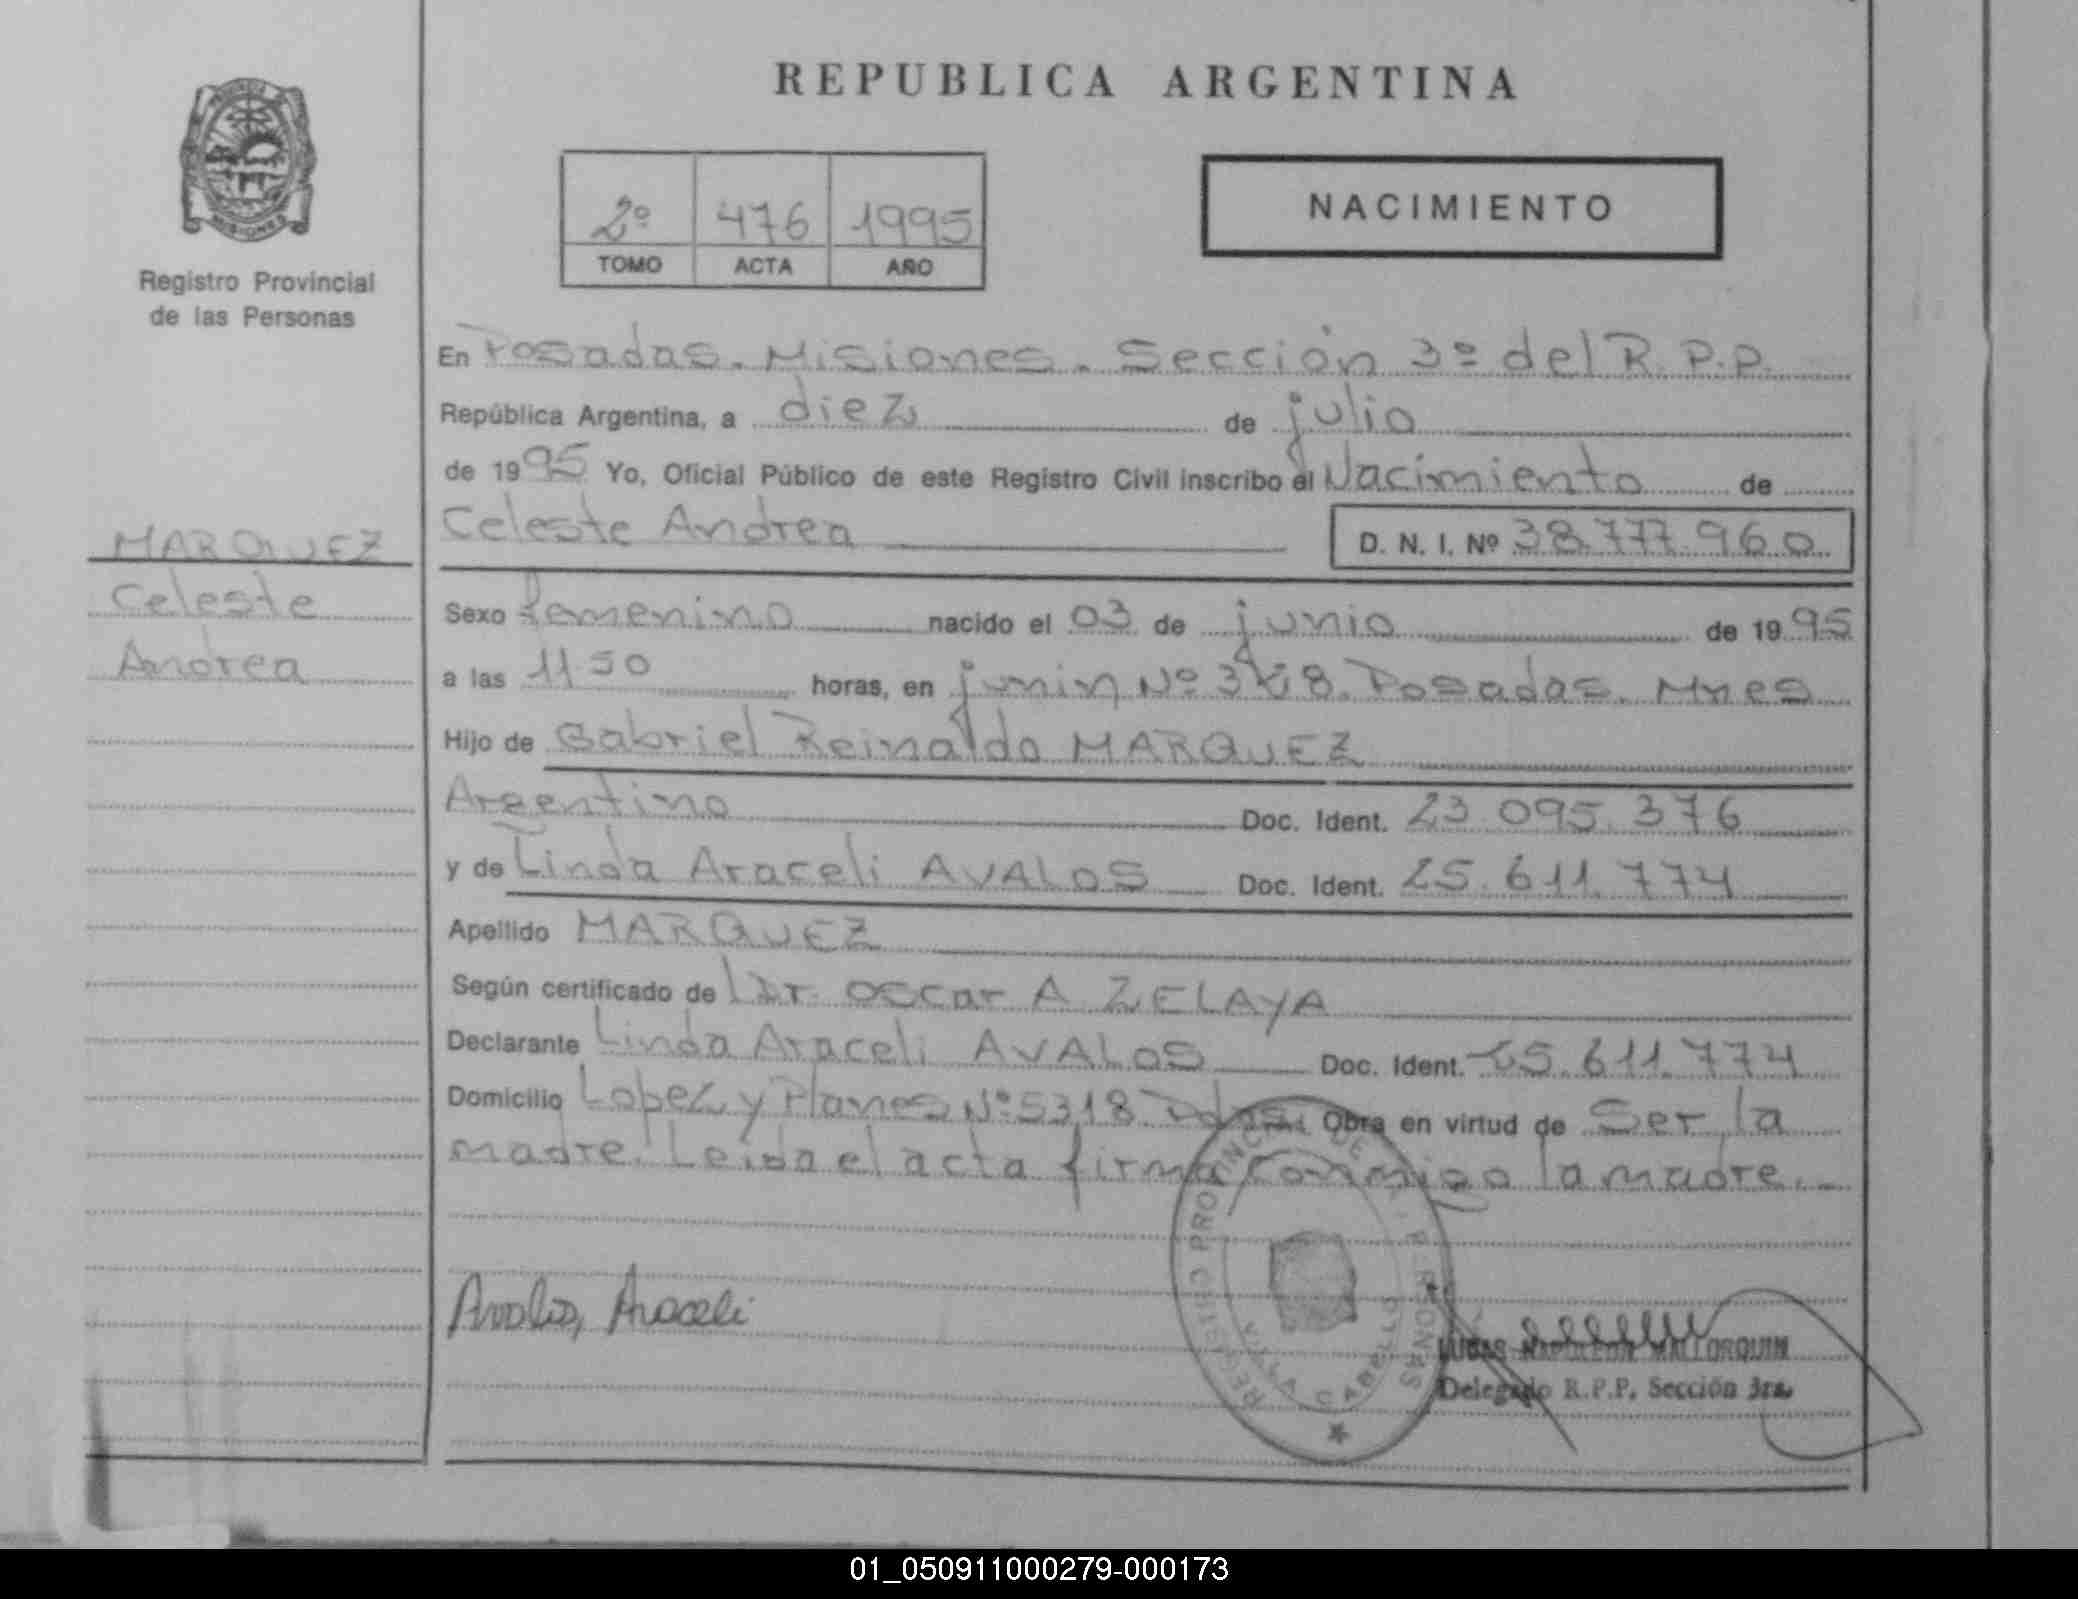 REPUBLICA ARGENTINA
2º 476 1995
TOMO ACTA AÑO
NACIMIENTO
PROVINCIA DE
MISIONES
Registro Provincial
de las Personas
MARQUEZ
Celeste
Andrea
En Posadas. Misiones. Sección 3º del R.P.P.
República Argentina, a diez de julio
de 1995 Yo, Oficial Público de este Registro Civil inscribo el Nacimiento de
Celeste Andrea D. N. I. Nº 38.777.960
Sexo femenino nacido el 03 de junio de 1995
a las 11 50 horas, en junin Nº Posadas. Mnes
Hijo de Gabriel Reinaldo MARQUEZ
Argentino Doc. Ident. 23 095.376
y de Linda Araceli AVALOS Doc. Ident. 25.611.774
Apellido MARQUEZ
Según certificado de Dr. Oscar A ZELAYA
Declarante Linda Araceli AVALOS Doc. Ident. 25.611.774
Domicilio Lopez y Planes Nº 5318 Pdas. Obra en virtud de Ser la
madre. Leida el acta firma conmigo la madre.
Avalos, Araceli
REGISTRO PROVINCIAL DE LAS PERSONAS
VILLA CABELLO
LUCAS NAPOLEON MALLORQUIN
Delegado R.P.P. Sección 3ra.
01_050911000279-000173